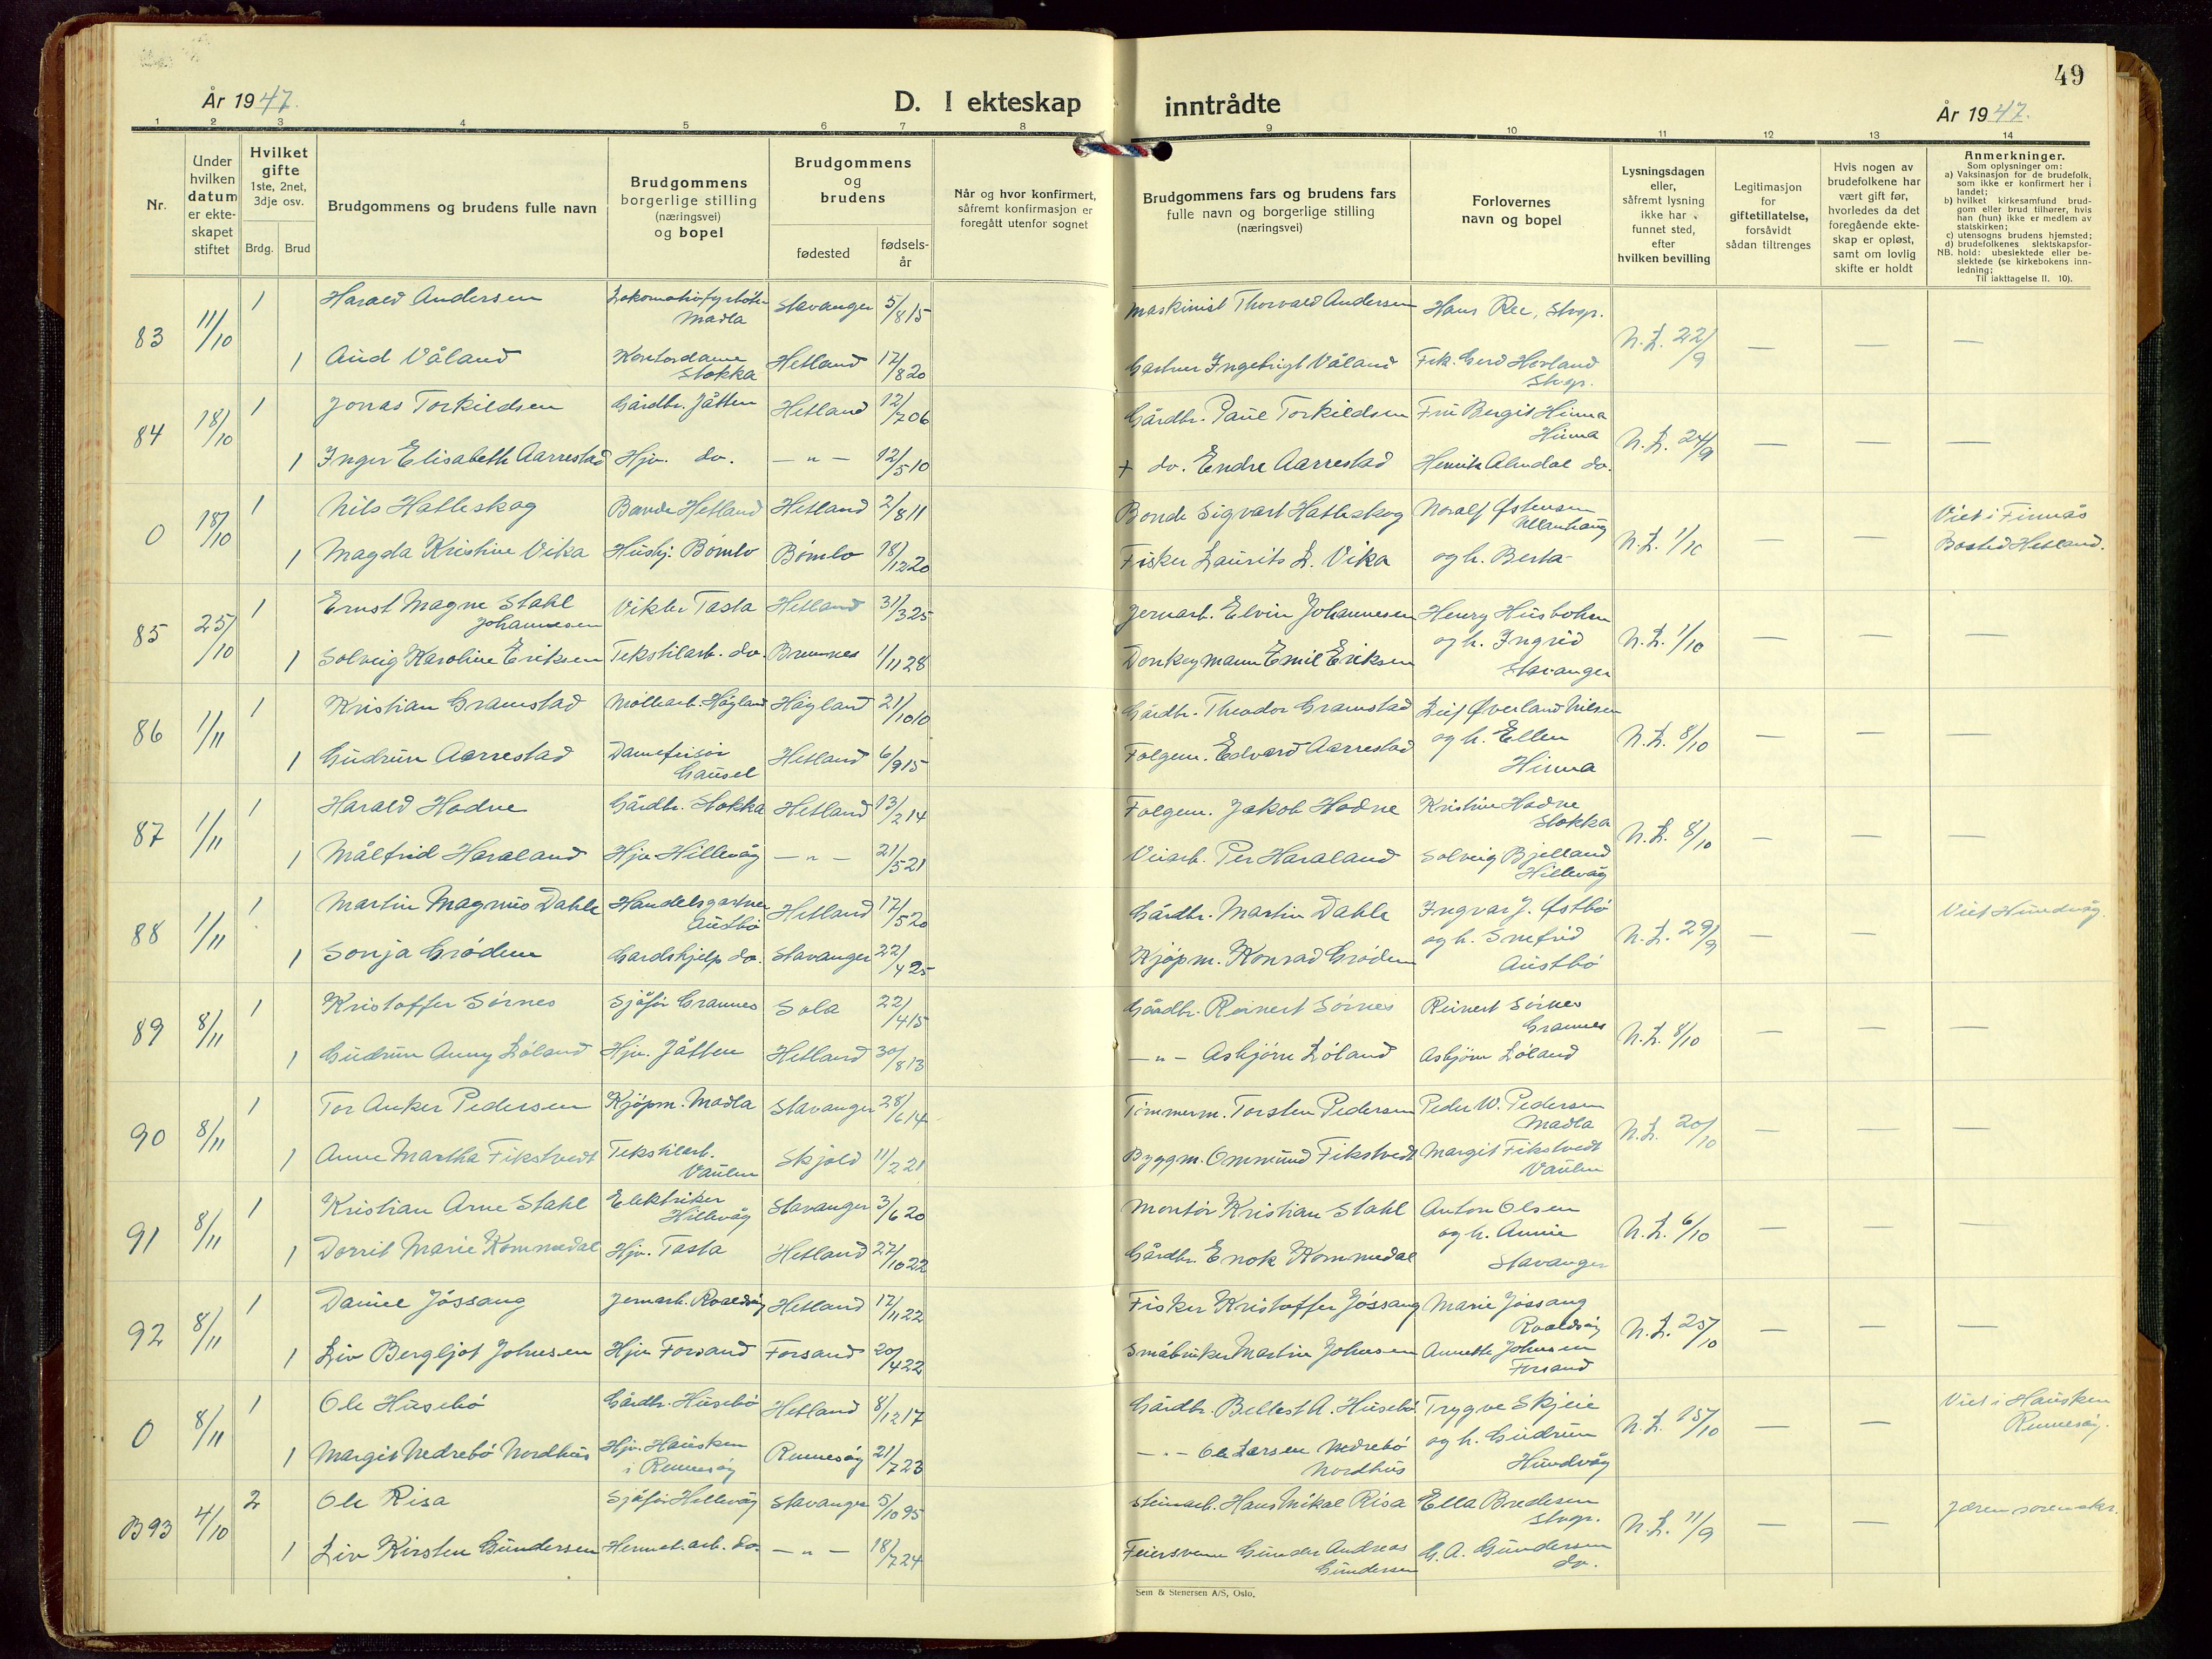 49
År 1947.
D. I ekteskap inntrådte
År 1947.
1 2 3 4 5 6 7 8 9 10 11 12 13 14
Nr.
Under hvilken datum er ekteskapet stiftet
Hvilket gifte 1ste, 2net, 3dje osv.
Brdg. Brud
Brudgommens og brudens fulle navn
Brudgommens borgerlige stilling (næringsvei) og bopel
Brudgommens og brudens
fødested
fødselsår
Når og hvor konfirmert, såfremt konfirmasjon er foregått utenfor sognet
Brudgommens fars og brudens fars fulle navn og borgerlige stilling (næringsvei)
Forlovernes navn og bopel
Lysningsdagen eller, såfremt lysning ikke har funnet sted, efter hvilken bevilling
Legitimasjon for giftetillatelse, forsåvidt sådan tiltrenges
Hvis nogen av brudefolkene har vært gift før, hvorledes da det foregående ekteskap er opløst, samt om lovlig skifte er holdt
Anmerkninger.
Som oplysninger om:
a) Vaksinasjon for de brudefolk, som ikke er konfirmert her i landet;
b) hvilket kirkesamfund brudgom eller brud tilhører, hvis han (hun) ikke er medlem av statskirken;
c) utensogns brudens hjemsted;
d) brudefolkenes slektskapsforhold: ubeslektede eller beslektede (se kirkebokens innledning;
NB. Til iakttagelse II. 10).
83 11/10 1 Harald Andersen Lokomotivfyrbøter Madla Stavanger 5/8 15 Maskinist Thorvald Andersen Hans Ree, Stvgr. N.L. 22/9 — — —
1 Aud Våland Kontordame Stokka Hetland 17/8 20 Gartner Ingebrigt Våland Frk. Gerd Hovland Stvgr.
84 18/10 1 Jonas Torkildsen Gårdbr. Jåtten Hetland 12/7 06 Gårdbr. Paul Torkildsen Fru Bergit Hinna Hinna N.L. 24/9 — — —
1 Inger Elisabeth Aarrestad Hjv. do. — " — 12/5 10 + do. Endre Aarrestad Henrik Almdal do.
0 18/10 1 Nils Hatleskog Bonde Hetland Hetland 2/8 11 Bonde Sigvart Hatleskog Noralf Østensen Ullanhaug N.L. 1/10 — — Viet i Finnås
1 Magda Kristine Vika Hushj. Bømlo Bømlo 18/12 20 Fisker Laurits L. Vika og h. Berta Bosted Hetland.
85 25/10 1 Ernst Magne Stahl Johannesen Vikler Tasta Hetland 31/3 25 Jernarb. Elvin Johannesen Henry Husbohm N.L. 1/10 — — —
1 Solveig Karoline Eriksen Tekstilarb. do. Bremnes 1/11 28 Donkeymann Emil Eriksen og h. Ingrid Stavanger
86 1/11 1 Kristian Gramstad Møllearb. Høyland Høyland 21/10 10 Gårdbr. Theodor Gramstad Leif Øverland Nilsen N.L. 8/10 — — —
1 Gudrun Aarrestad Damefrisør Gausel Hetland 6/9 15 Folgem. Edvard Aarrestad og h. Ellen Hinna
87 1/11 1 Harald Hodne Gårdbr. Stokka Hetland 13/2 14 Folgem. Jakob Hodne Kristine Hodne Stokka N.L. 8/10 — — —
1 Målfrid Haraland Hjv. Hillevåg — " — 21/5 21 Veiarb. Per Haraland Solveig Bjelland Hillevåg
88 1/11 1 Martin Magnus Dahle Handelsgartner Austbø Hetland 17/5 20 Gårdbr. Martin Dahle Ingvar J. Østbø N.L. 29/9 — — Viet Hundvåg.
1 Sonja Grødem Gardshjelp do. Stavanger 22/4 25 Kjøpm. Konrad Grødem og h. Snefrid Austbø
89 8/11 1 Kristoffer Sörnes Sjåfør Grannes Sola 22/4 15 Gårdbr. Reinert Sörnes Reinert Sörnes Grannes N.L. 8/10 — — —
1 Gudrun Anny Löland Hjv. Jåtten Hetland 30/8 13 — " — Asbjörn Löland Asbjörn Löland
90 8/11 1 Tor Anker Pedersen Kjöpm. Madla Stavanger 28/6 14 Timmerm. Torsten Pedersen Peder W. Pedersen Madla N.L. 20/10 — — —
1 Anne Martha Fikstvedt Tekstilarb. Vaulen Skjold 11/2 21 Byggm. Ommund Fikstvedt Margit Fikstvedt Vaulen
91 8/11 1 Kristian Arne Stahl Elektriker Hillevåg Stavanger 3/6 20 Montör Kristian Stahl Anton Olsen N.L. 6/10 — — —
1 Dorrit Marie Kommedal Hjv. Tasta Hetland 27/10 22 Gårdbr. Enok Kommedal og h. Annie Stavanger
92 8/11 1 Daniel Jössang Jernarb. Roaldsøy Hetland 17/11 22 Fisker Kristoffer Jössang Marie Jössang Roaldsøy N.L. 25/10 — — —
1 Liv Bergljot Johnsen Hjv. Forsand Forsand 20/4 22 Småbruker Martin Johnsen Annette Johnsen Forsand
0 8/11 1 Ole Husebö Gårdbr. Husebö Hetland 8/12 17 Gårdbr. Bellest A. Husebö Trygve Skjeie N.L. 15/10 — — Viet i Hausken Rennesöy.
1 Margit Nedrebö Nordhus Hjv. Hausken i Rennesöy Rennesöy 21/7 23 — " — Ole Larsen Nedrebö Nordhus og h. Gudrun Hundvåg
B 93 4/10 2 Ole Risa Sjåför Hillevåg Stavanger 5/10 95 Steinarb. Hans Mikal Risa Ella Bredesen Stvgr. N.L. 11/9 — — Jæren sorenskr.
1 Liv Kirsten Gundersen Hermet.arb. do. — " — 18/7 24 Feiersvenn Gunder Andreas Gundersen G. A. Gundersen do.
Sem & Stenersen A/S, Oslo.